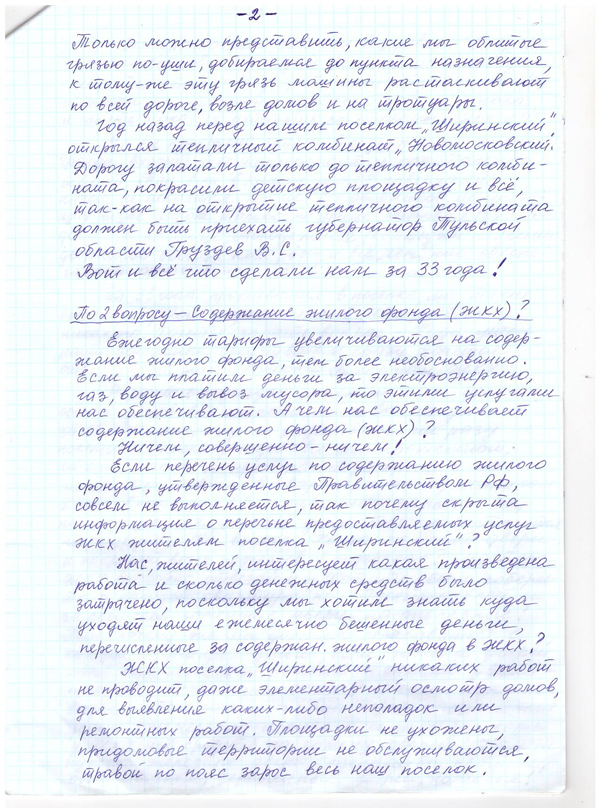 -2-
Только можно представить, какие мы облитые
грязью по-уши, добираемся до пункта назначения,
к тому-же эту грязь машины растаскивают
по всей дороге, возле домов и на тротуары.
Год назад перед нашим поселком „Ширинский",
открылся тепличный комбинат „Новомосковский.
Дорогу залатали только до тепличного комби-
ната, покрасили детскую площадку и всё,
так-как на открытие тепличного комбината
должен быть приехать губернатор Тульской
области Груздев В.С.
Вот и всё что сделали нам за 33 года!
По 2 вопросу – Содержание жилого фонда (ЖКХ)?
Ежегодно тарифы увеличиваются на содер-
жание жилого фонда, тем более необоснованно.
Если мы платим деньги за электроэнергию,
газ, воду и вывоз мусора, то этими услугами
нас обеспечивают. А чем нас обеспечивает
содержание жилого фонда (ЖКХ)?
Ничем, совершенно – ничем!
Если перечень услуг по содержанию жилого
фонда, утвержденные Правительством РФ,
совсем не выполняется, так почему скрыта
информация о перечне предоставляемых услуг
ЖКХ жителям поселка „Ширинский"?
Нас, жителей, интересует какая произведена
работа и сколько денежных средств было
затрачено, поскольку мы хотим знать куда
уходят наши ежемесячно бешенные деньги,
перечисленные за содержан. жилого фонда в ЖКХ?
ЖКХ поселка „Ширинский" никаких работ
не проводит, даже элементарный осмотр домов,
для выявление каких-либо неполадок или
ремонтных работ. Площадки не ухожены,
придомовые территории не обслуживаются,
травой по пояс зарос весь наш поселок.